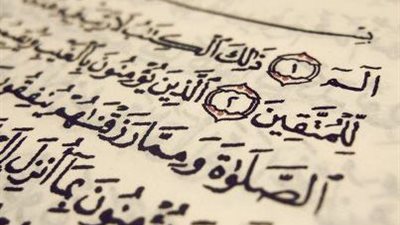 الٓمٓ ١ ذَٰلِكَ ٱلْكِتَٰبُ لَا رَيْبَ فِيهِ
لِّلْمُتَّقِينَ ٢ ٱلَّذِينَ يُؤْمِنُونَ بِٱلْغَيْبِ
ٱلصَّلَوٰةَ وَمِمَّا رَزَقْنَٰهُمْ يُنفِقُو
يُؤْمِنُونَ بِمَآ أُنزِلَ